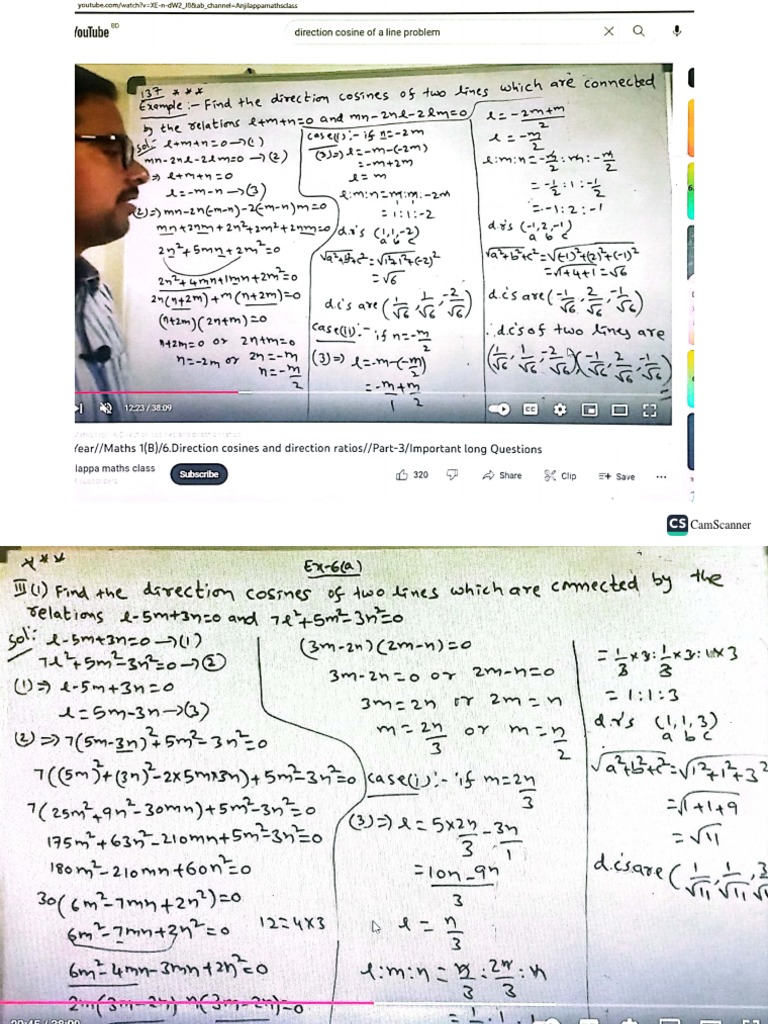 youtube.com/watch?v=XE-n-dW2_J8&ab_channel=Anjilappamathsclass
YouTube BD
direction cosine of a line problem
137 ***
Example :- Find the direction cosines of two lines which are connected
by the relations l+m+n=0 and mn-2nl-2lm=0
Sol:- l+m+n=0 →(1)
mn-2nl-2lm=0 →(2)
⇒ l+m+n=0
l=-m-n →(3)
(2)⇒ mn-2n(-m-n)-2(-m-n)m=0
mn+2nm+2n²+2m²+2nm=0
2n²+5mn+2m²=0
2n²+4mn+1mn+2m²=0
2n(n+2m)+m(n+2m)=0
(n+2m)(2n+m)=0
n+2m=0 or 2n+m=0
n=-2m or 2n=-m
n=-m/2
Case(i):- if n=-2m
(3)⇒ l=-m-(-2m)
=-m+2m
l=m
l:m:n=m:m:-2m
=1:1:-2
d.r's (1,1,-2)
a b c
√a²+b²+c²=√1²+1²+(-2)²
=√6
d.c's are (1/√6, 1/√6, -2/√6)
Case(ii):- if n=-m/2
(3)⇒ l=-m-(-m/2)
=-m/1+m/2
l=-2m+m/2
l=-m/2
l:m:n=-m/2:m:-m/2
=-1/2:1:-1/2
=-1:2:-1
d.r's (-1,2,-1)
a b c
√a²+b²+c²=√(-1)²+(2)²+(-1)²
=√1+4+1=√6
d.c's are (-1/√6, 2/√6, -1/√6)
∴ d.c's of two lines are
(1/√6, 1/√6, -2/√6)(-1/√6, 2/√6, -1/√6)
12:23 / 38:09
CC
Year//Maths 1(B)/6.Direction cosines and direction ratios//Part-3/Important long Questions
lappa maths class
Subscribe
320
Share
Clip
Save
CS CamScanner
***
Ex-6(a)
III (1) Find the direction cosines of two lines which are connected by the
relations l-5m+3n=0 and 7l²+5m²-3n²=0
Sol:- l-5m+3n=0 →(1)
7l²+5m²-3n²=0 →(2)
(1)⇒ l-5m+3n=0
l=5m-3n →(3)
(2)⇒ 7(5m-3n)²+5m²-3n²=0
7((5m)²+(3n)²-2×5m×3n)+5m²-3n²=0
7(25m²+9n²-30mn)+5m²-3n²=0
175m²+63n²-210mn+5m²-3n²=0
180m²-210mn+60n²=0
30(6m²-7mn+2n²)=0
6m²-7mn+2n²=0 12=4×3
6m²-4mn-3mn+2n²=0
2m(3m-2n)-n(3m-2n)=0
(3m-2n)(2m-n)=0
3m-2n=0 or 2m-n=0
3m=2n or 2m=n
m=2n/3 or m=n/2
Case(i):- if m=2n/3
(3)⇒ l=5×2n/3-3n/1
=10n-9n/3
l=n/3
l:m:n=n/3:2n/3:n
=1/3×3:1/3×3:1×3
=1:1:3
d.r's (1,1,3)
a b c
√a²+b²+c²=√1²+1²+3²
=√1+1+9
=√11
d.c's are (1/√11, 1/√11, 3/√